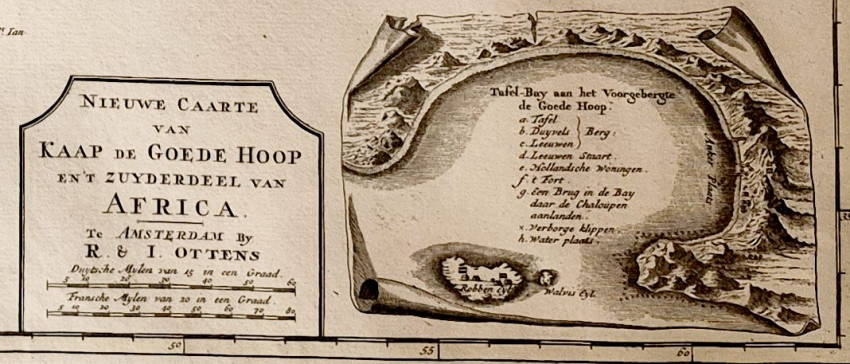 Tan
NIEUWE CAARTE
VAN
KAAP DE GOEDE HOOP
EN'T ZUYDERDEEL VAN
AFRICA.
Te AMSTERDAM By
R. & I. OTTENS
Duytsche Mylen van 15 in een Graad.
5 10 20 30 40 50 60
Fransche Mylen van 20 in een Graad.
5 10 20 30 40 50 60 70 80
Tafel-Bay aan het Voorgebergte
de Goede Hoop.
a. Tafel
b. Duyvels Berg:
c. Leeuwen
d. Leeuwen Staart.
e. Hollandsche Woningen.
f. t Fort.
g. Een Brug in de Bay
daar de Chaloupen
aanlanden.
x. Verborge klippen.
h. Water plaats.
Anker Plaats
Robben Eyl.
Walvis Eyl.
50 55 60